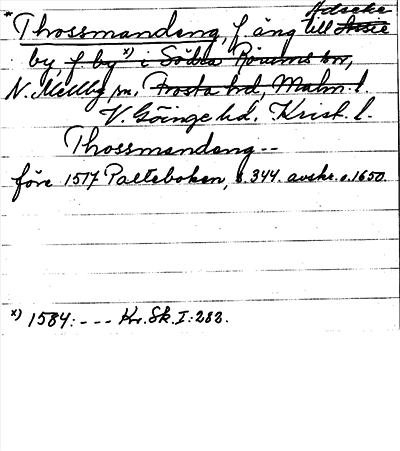 Adseke
* Thossmandeng, f. äng till Assie
by, f. by *) i Södra Rörums sn,
N. Mellby sn. Frosta hd, Malm. l.
V. Göinge hd. Krist. l.
Thossmandeng --
före 1517 Palteboken, s. 344. avskr. c. 1650.
*) 1584: --- Kr. Sk. I: 282.